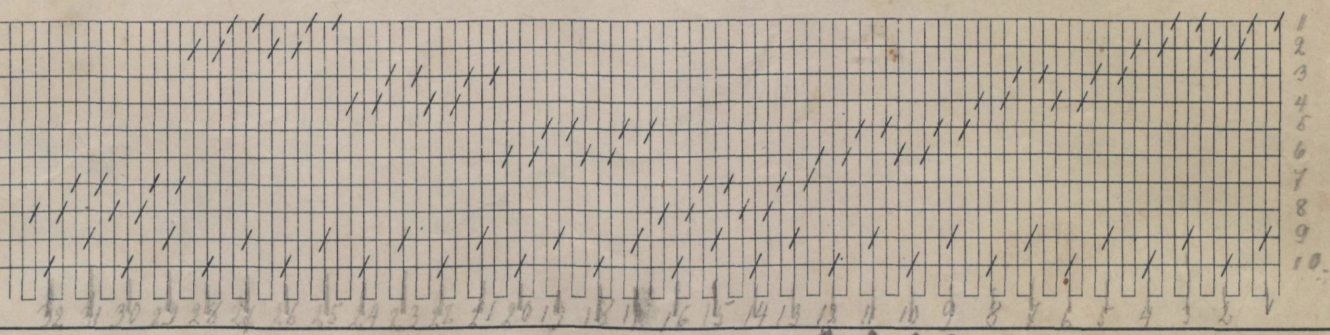 1
2
3
4
5
6
7
8
9
10
32 31 30 29 28 27 26 25 24 23 22 21 20 19 18 17 16 15 14 13 12 11 10 9 8 7 6 5 4 3 2 1